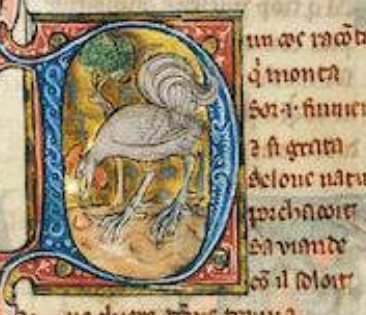 Dun coc racōte
q̇ monta
Sor .i. fumier
⁊ si grata
Selonc natu
porchacoit
Sa viande
cō il soloit